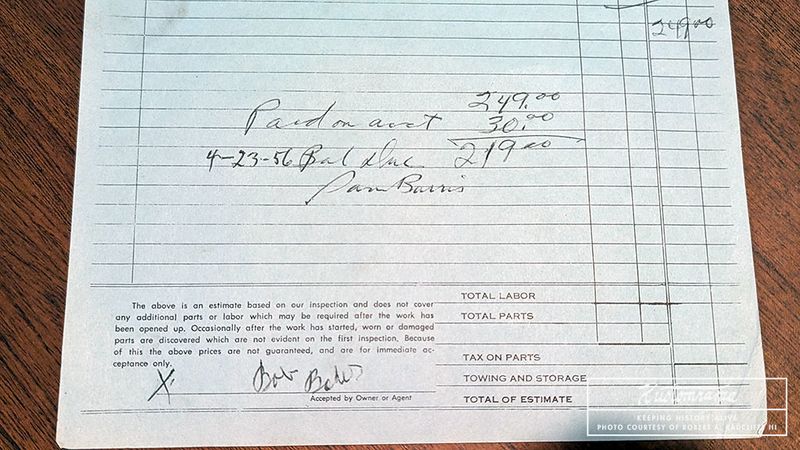 249.00
249.00
Paid on acct 30.00
4-23-56 Bal due 219.00
Sam Barris
The above is an estimate based on our inspection and does not cover
any additional parts or labor which may be required after the work has
been opened up. Occasionally after the work has started, worn or damaged
parts are discovered which are not evident on the first inspection. Because
of this the above prices are not guaranteed, and are for immediate ac-
ceptance only.
X Bob
Accepted by Owner or Agent
TOTAL LABOR
TOTAL PARTS
TAX ON PARTS
TOWING AND STORAGE
TOTAL OF ESTIMATE
Kustomrama
KEEPING HISTORY ALIVE
PHOTO COURTESY OF ROBERT A. RADCLIFFE III